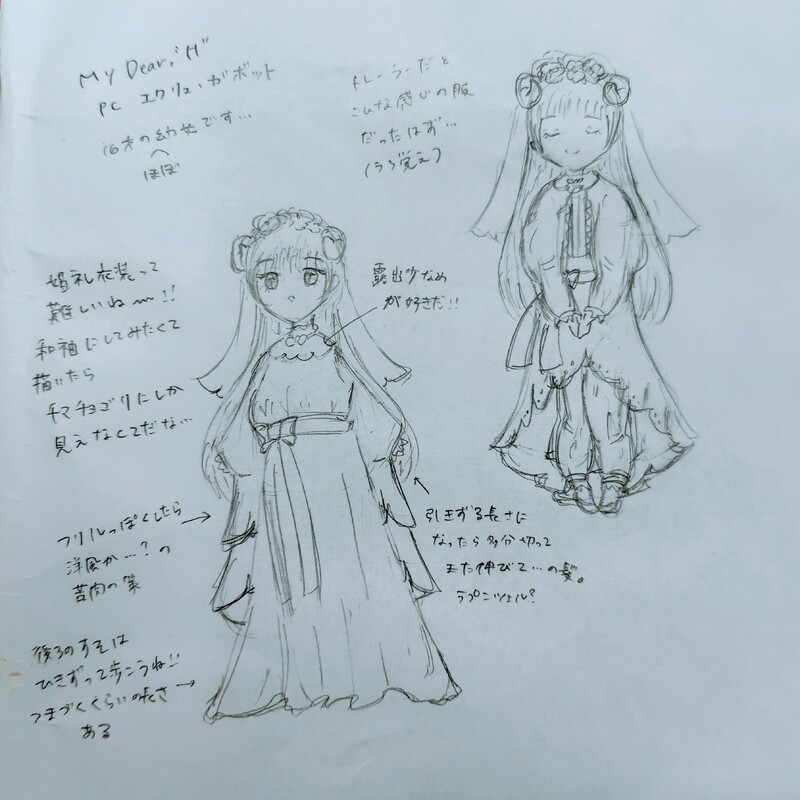 My Dear, "H"
PC エクリュ・ガボット
16才の幼女です…
ほぼ
トレーラーだと
こんな感じの服
だったはず…
(うろ覚え)
婚礼衣装って
難しいね〜!!
和袖にしてみたくて
描いたら
チマチョゴリにしか
見えなくてだな…
露出少なめ
が好きだ!!
フリルっぽくしたら
洋風か…?の
苦肉の策
引きずる長さに
なったら多分切って
また伸びて…の髪。
ラプンツェル?
後ろのすそは
ひきずって歩こうね!!
つまづくくらいの長さ
ある